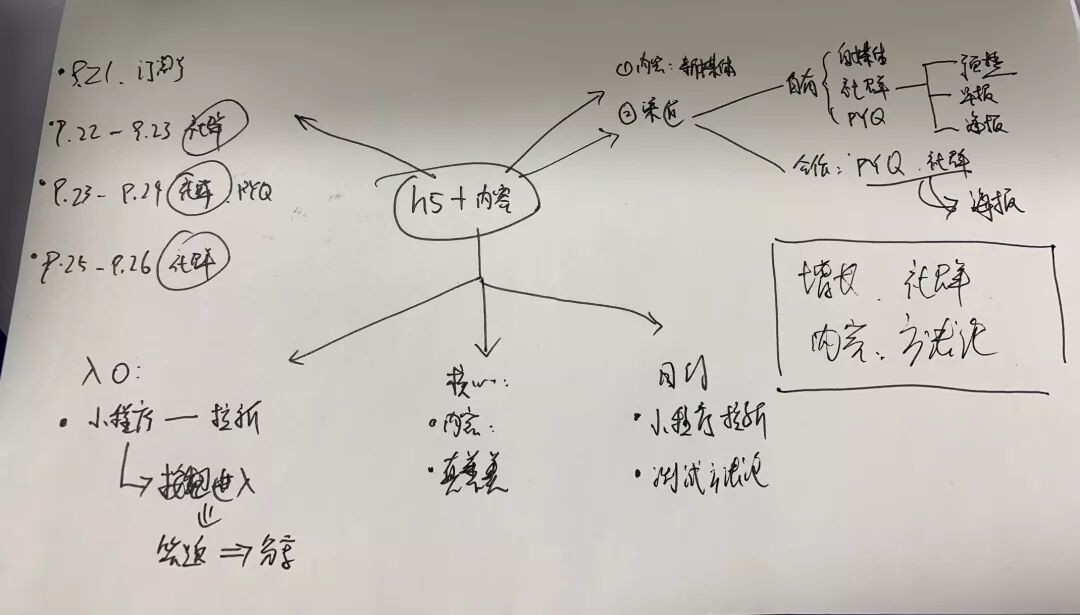 · 8.21、订阅号
· 8.22 - 8.23 社群
· 8.23 - 8.24 社群、PYQ
· 8.25 - 8.26 社群
h5 + 内容
① 内容：新媒体
② 渠道
自有
自媒体
社群
PYQ
海报
合伙：PYQ、社群
海报
增长、社群
内容、方法论
入口：
· 小程序 — 拉新
按钮进入
答题 ⇒ 分享
核心：
· 内容：
· 真善美
目的
· 小程序拉新
· 测试方法论